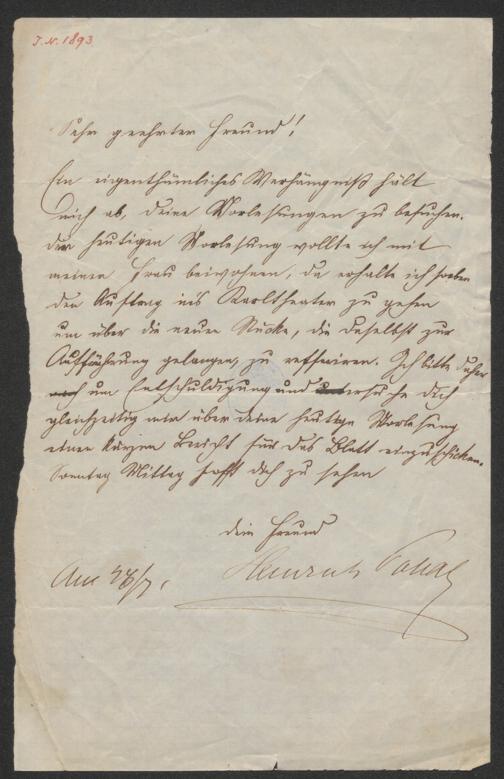 J. N. 1893
Sehr geehrter Freund!
Ein eigenthümliches Verhängniß hält
mich ab, deine Vorlesungen zu besuchen.
Der heutigen Vorlesung wollte ich mit
meiner Frau beiwohnen, da erhalte ich soeben
den Auftrag ins Karltheater zu gehen
um über die neuen Stücke, die daselbst zur
Aufführung gelangen, zu referiren. Ich bitte daher
um Entschuldigung und ersuche dich
gleichzeitig mir über deine heutige Vorlesung
einen kurzen Bericht für das Blatt einzuschicken.
Sonntag Mittag hofft dich zu sehen
dein Freund
Am
Heinrich